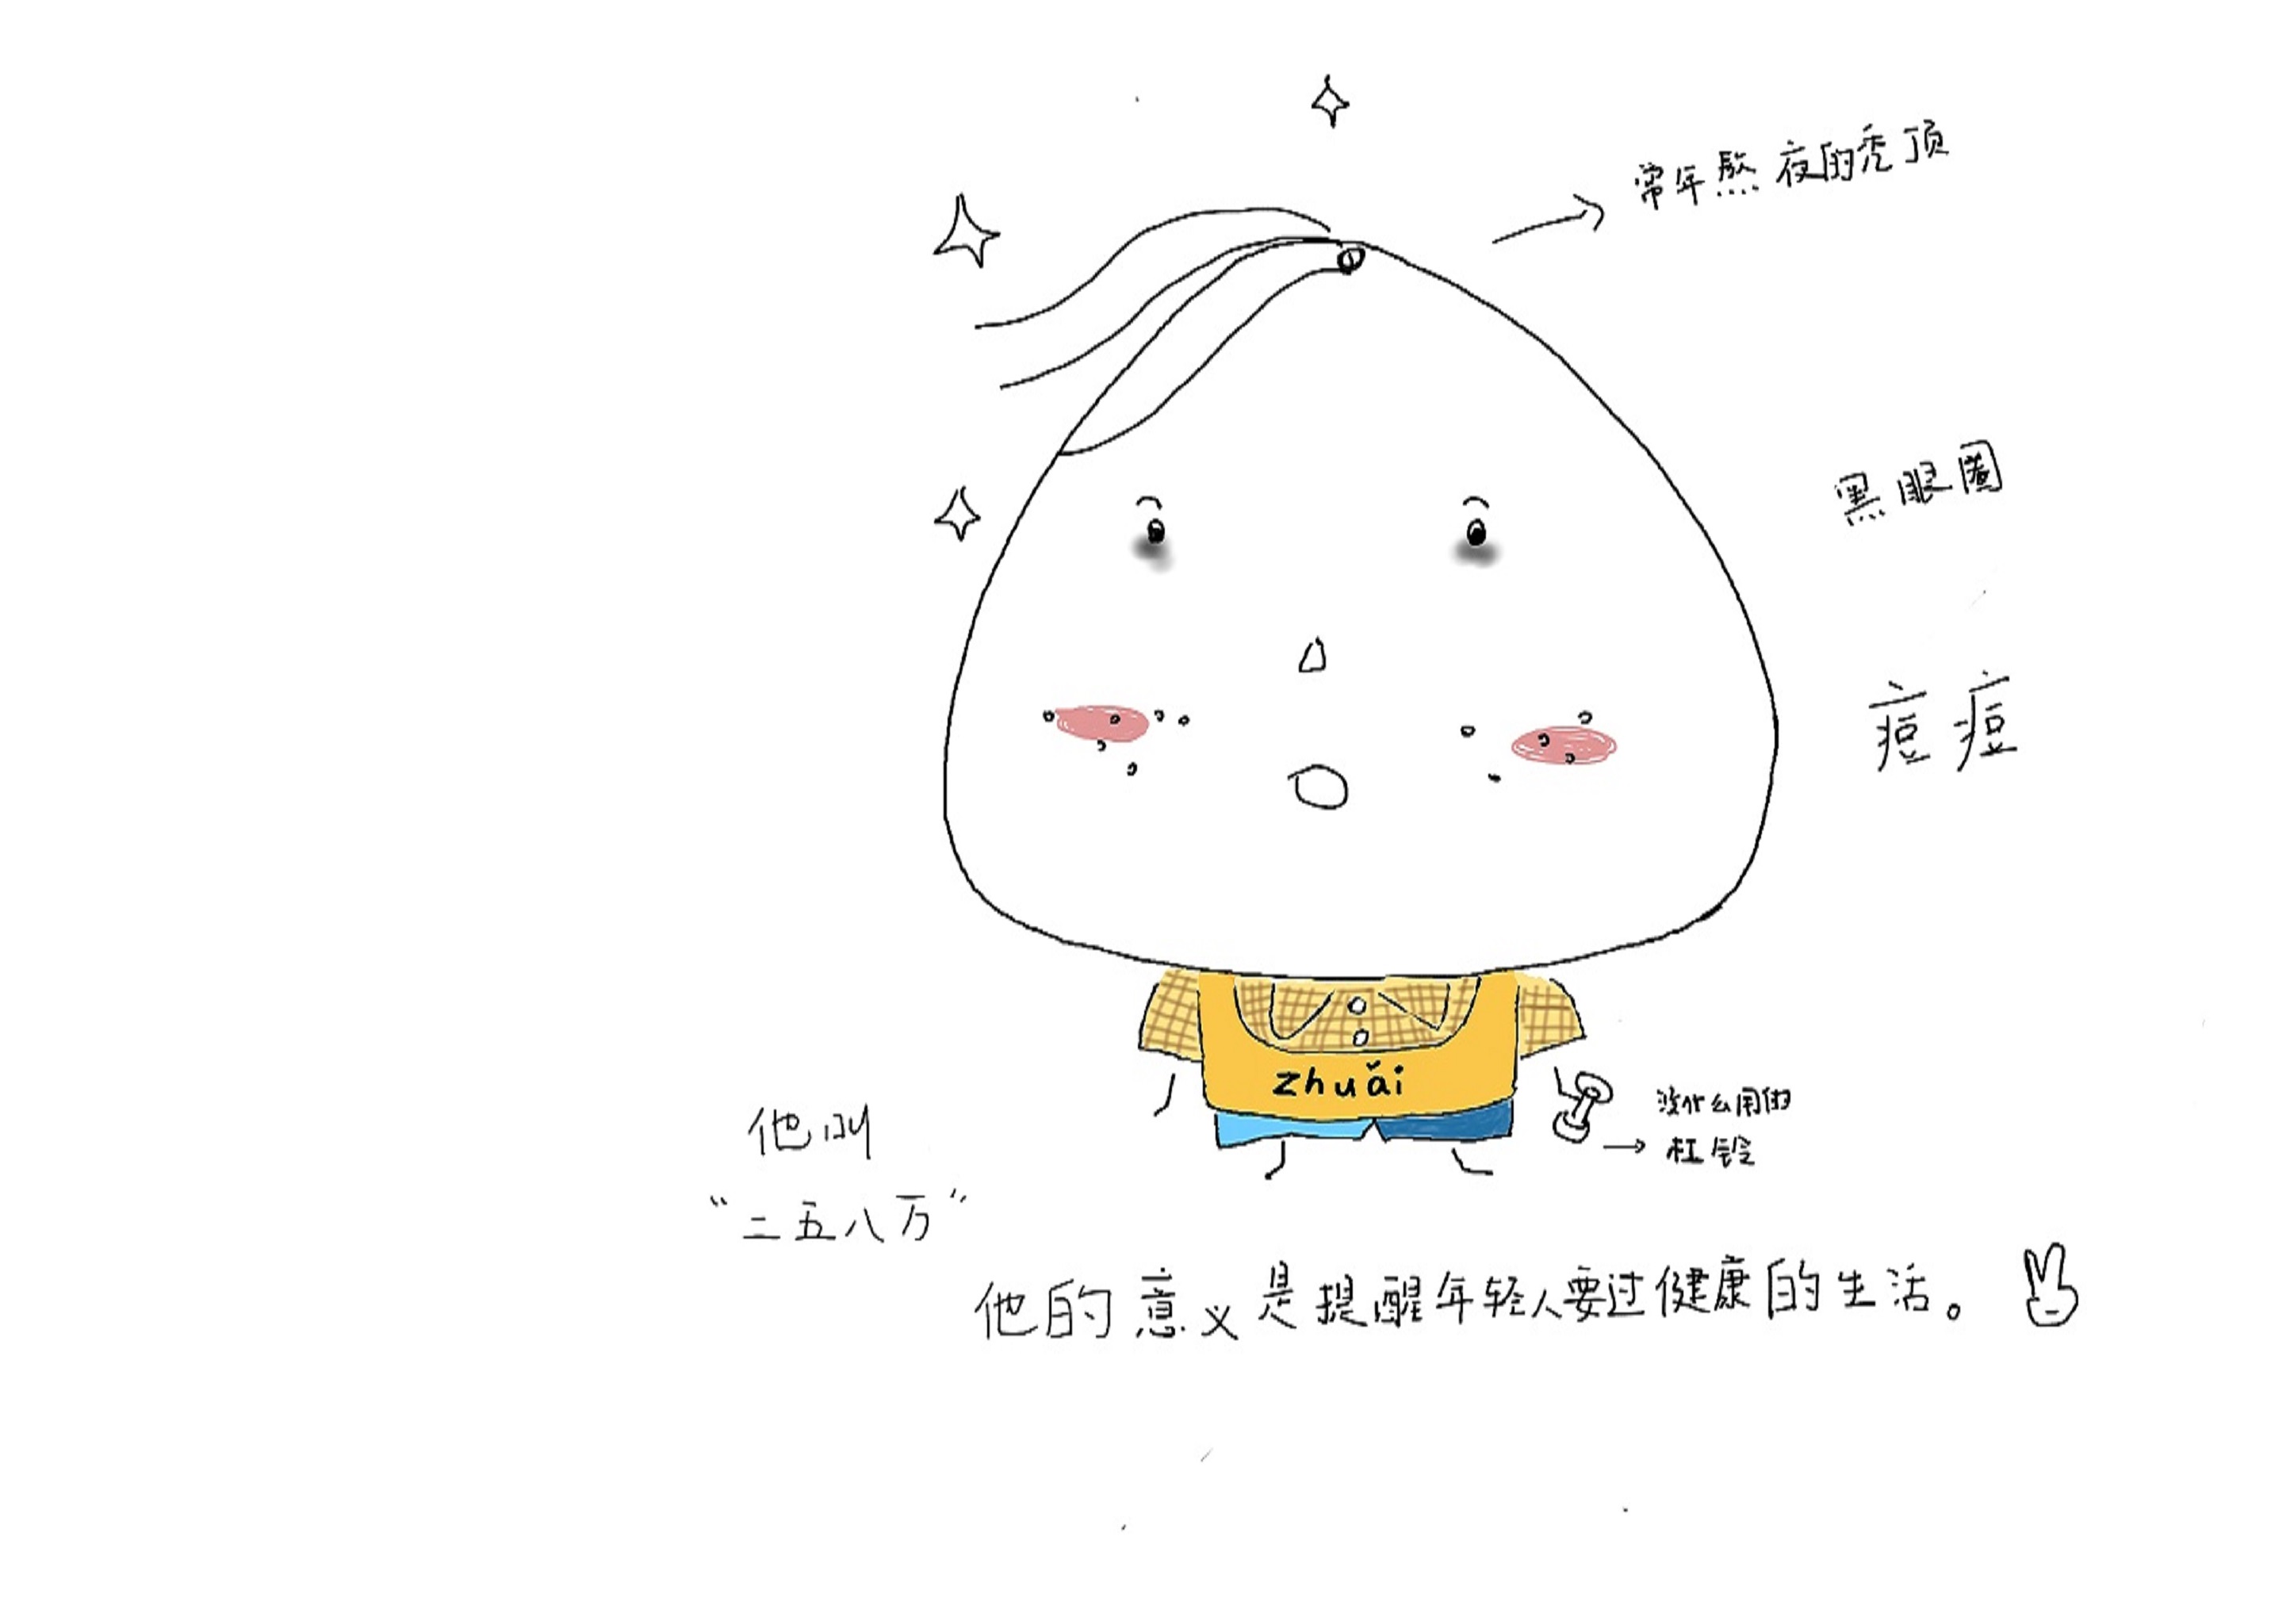 常年熬夜的秃顶
黑眼圈
痘痘
zhuǎi
没什么用的
杠铃
他叫
“二五八万”
他的意义是提醒年轻人要过健康的生活。